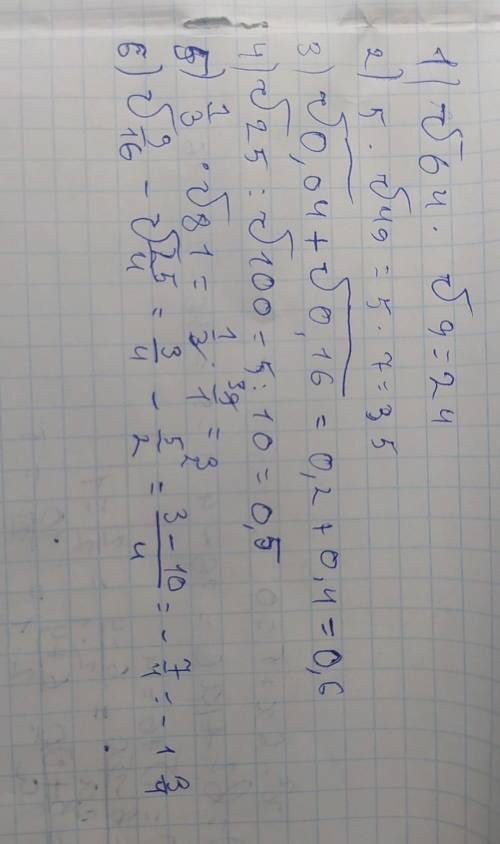 1) √64 · √9 = 24
2) 5 · √49 = 5 · 7 = 35
3) √0,04 + √0,16 = 0,2 + 0,4 = 0,6
4) √25 : √100 = 5 : 10 = 0,5
5) 1/3 · √81 = 1/3 · 9/1 = 3
6) √9/16 - √25/4 = 3/4 - 5/2 = 3-10/4 = -7/4 = -1 3/4